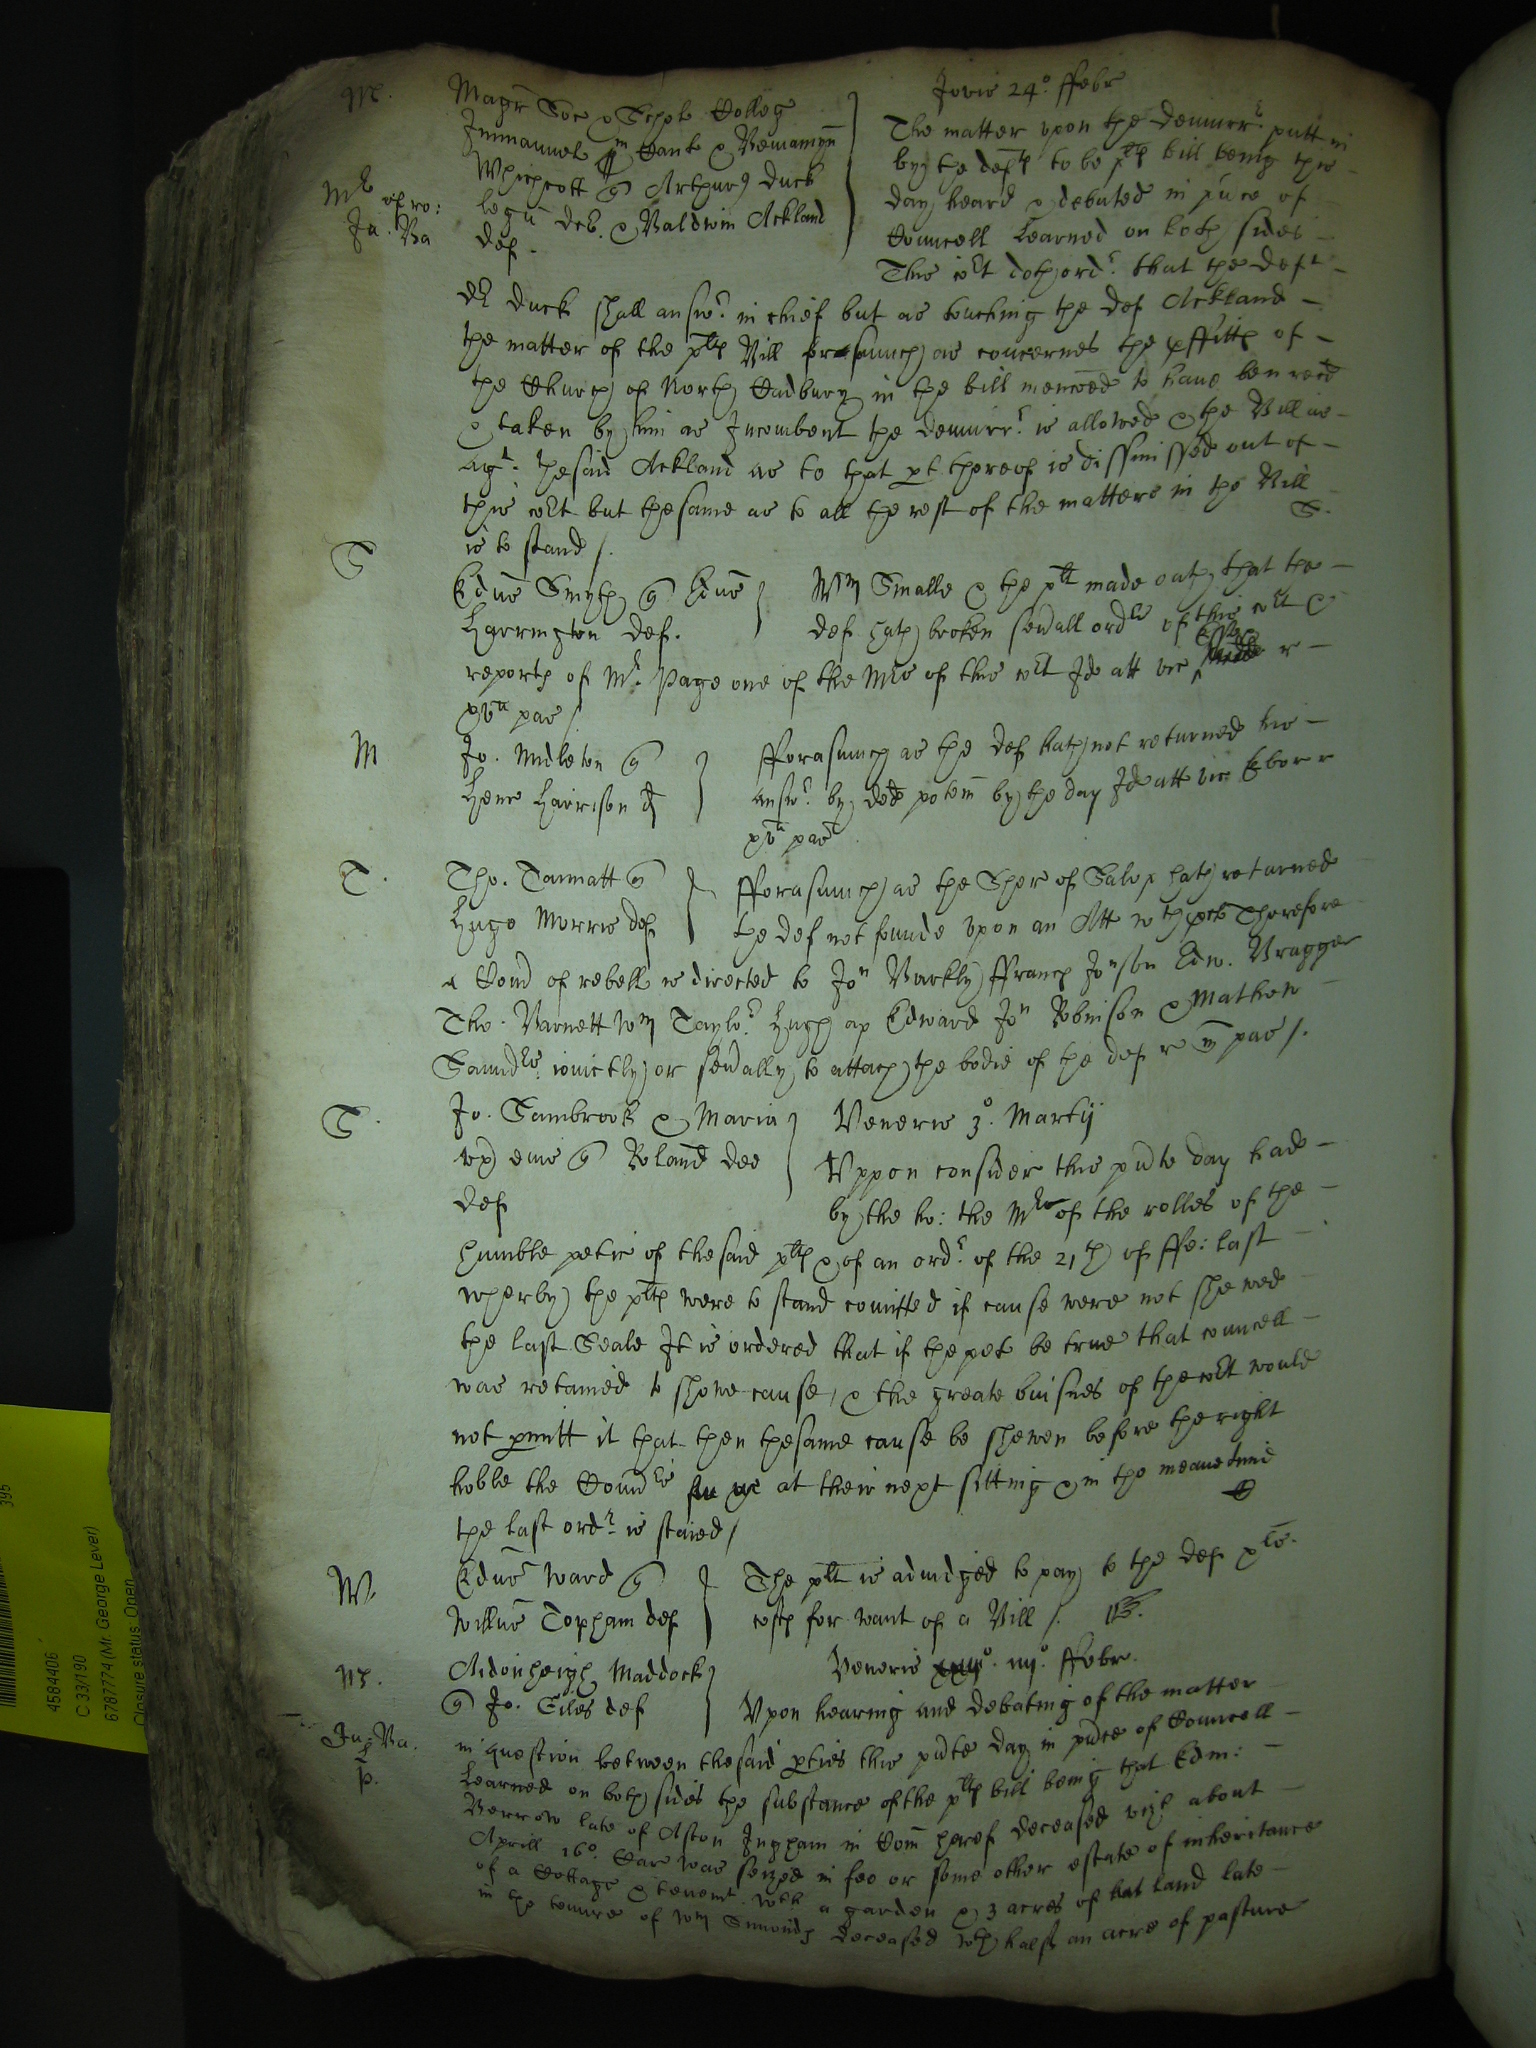 M.
Magr Soc & Schol Colleg
Immanuel in Cant & Beniamyn
Whichcott q Arthurū Duck
legū doc. & Baldwin Ackland
def.
Mr of ro:
Ju. Ba
Jovis 24o. ffebr
The matter upon the demurrr. putt in
by the deftes to the pltes bill being this
day heard & debated in pñce of
Councell Learned on both sides
This cort doth ordr. that the deft
Dr Duck shall answr. in chief but as touching the def Ackland
the matter of the pltes Bill forasmuch as concernes the pffittes of
the Church of North Cadbury in the bill menc̃oed to have ben recd
& taken by him as Incombent the demurrr. is allowed & the Bill as
agt. the said Ackland as to that pt thereof is dissmissed out of
this cort but the same as to all the rest of the matters in the Bill
is to stand /.
S.
S
Edūs Smyth q Edūs
Harrington def.
Wm Smalle & the plt made oath that the
def hath broken sevall ordrs of this cort &
reportes of Mr. Page one of the Mrs of this cort Ido att vic Essex r
xva pas /
M
Jo. Midleton q
Henr Harrison d
fforasmuch as the def hath not returned his
answr. by ded potem by the day Ido att vic Ebor r
xva pas
T.
Tho. Tannatt q
Hugo Morris def
fforasmuch as the Sher of Salop hath returned
the def not founde upon an Att wth pcla Therefore
a Com of rebell is directed to Jon Barkly ffrancs Jonson Edw. Bragger
Tho. Barnett Wm Taylor. Hugh ap Edward Jon Robinson & Mathew
Saundrs. ioinctly or sevally to attach the bodie of the def r m pas /.
S.
Jo. Sambrook & Maria
uxr eius q Roland dee
def
Veneris 3o. Martij
Uppon consider this pnte day had
by the ho: the Mr of the rolles of the
humble petic of the said pltes & of an ordr. of the 21th of ffe: last
wherby the pltes were to stand comitted if cause were not shewed
the last Seale It is ordered that if the pet be true that councell
was retained to shewe cause, & the greate buisnes of the cort would
not pmitt it that then the same cause be shewen before the right
hoble the Comrs at their next sitting & in the meane time
the last ordr. is staied /
W.
Edūs Ward q
Willūs Topham def
The plt is adiudged to pay to the def xls.
costes for want of a Bill /.
M.
Ju: Ba.
p.
Maddock
q Jo. Giles def
Veneris iiijo. ffebr.
Upon hearing and debating of the matter
in question between the said pties this pnte day in pnce of Councell
Learned on both sides the substance of the pltes bill being that Edm:
Berrow late of Aston Ingham in Com heref deceased vizt about
Aprill 16o. Car was seized in fee or some other estate of inheritance
of a Cottage & tenemt. wth a garden & 3 acres of land late
in the tenure of Wm Simondes deceased wth halfe an acre of pasture
395
4584406
C 33/190
6787774 (Mr. George Lever)
Closure status: Open